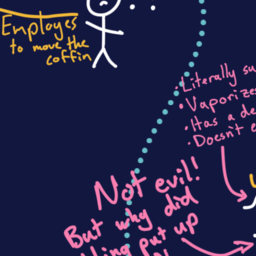 Employes
to move the
coffin
Literally
• Vaporizes
• Has a
• Doesn't
Not evil!
But why did
put up